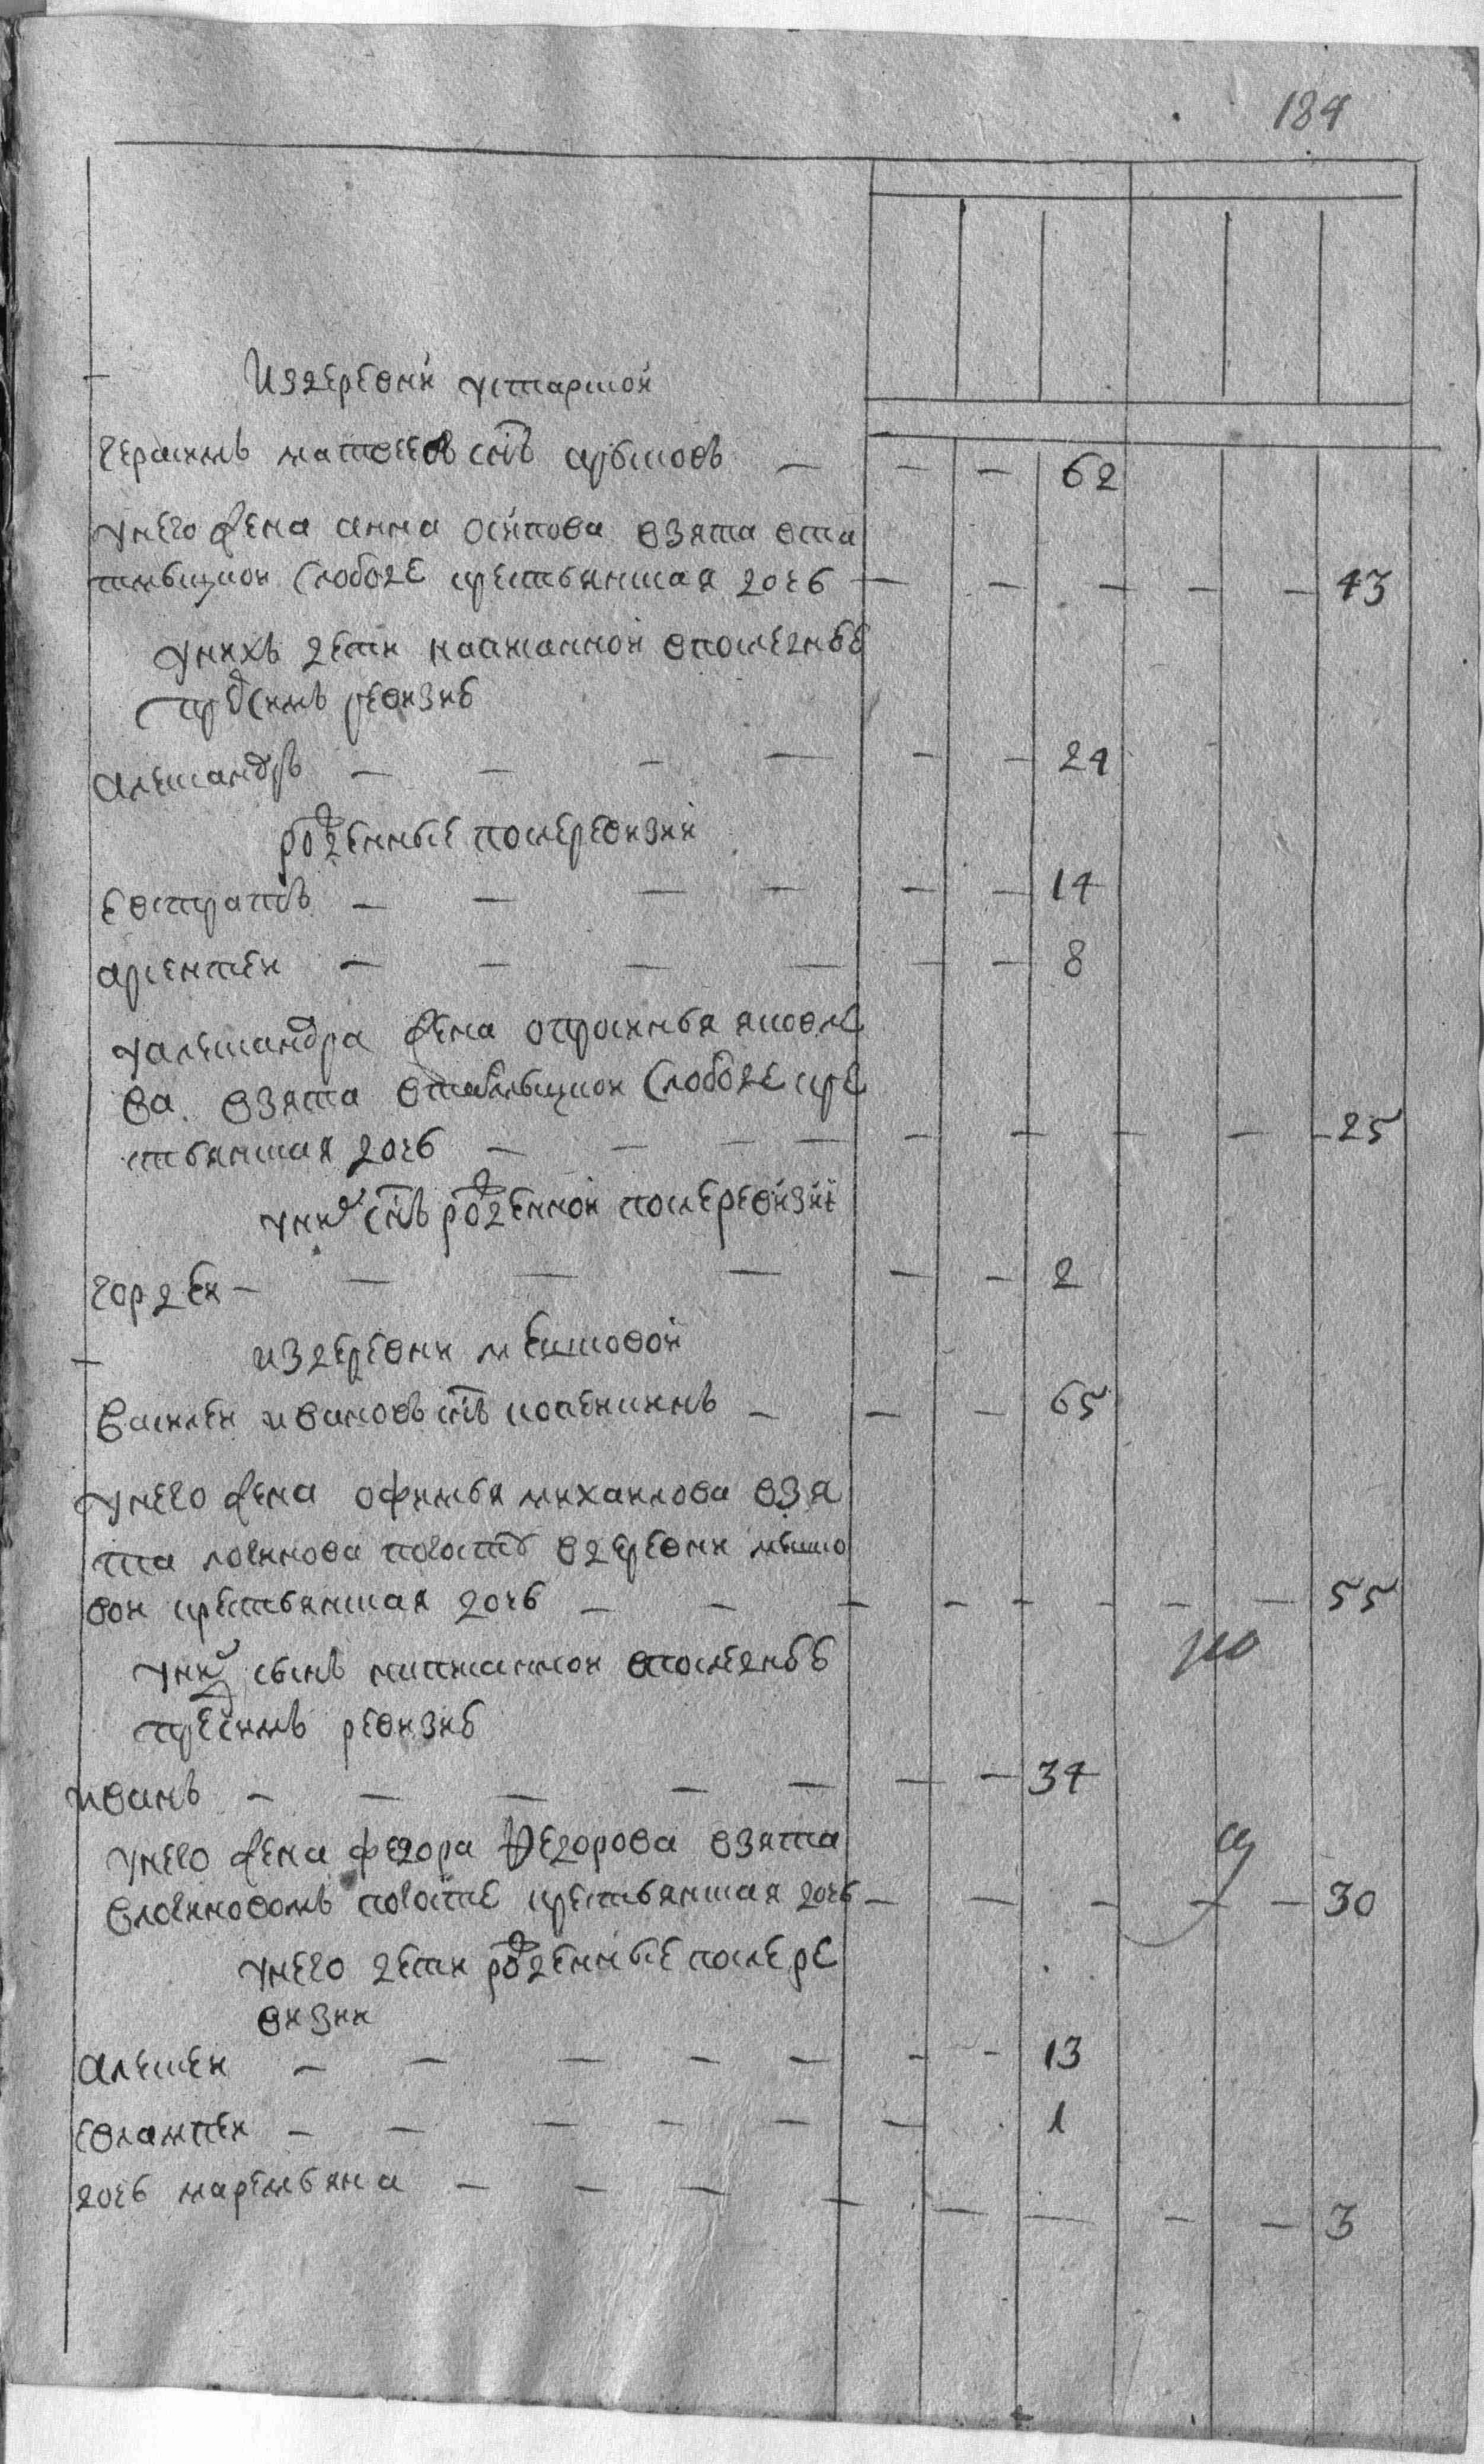 184
Из деревни
Герасимъ матвеевъ снъ — — — 62
унего жена анна осипова взята вта
слободе крестьянская дочь — — — — — 43
унихъ дети написанной впоследнеи
пред симъ ревизие
александръ — — — — — — 24
рожденные после ревизии
евстратъ — — — — — — 14
арсентеи — — — — — — 8
уалександра жена офросинья яковле
ва взята слободе кре
стьянская дочь — — — — — — — — — 25
уних снъ рожденнои после ревизиї
гордеи — — — — — — 2
из деревни мешковои
василеи ивановъ снъ — — — 65
унего жена офимья михаилова взя
та логинова погосту вдеревни мешко
вои крестьянская дочь — — — — — — — — 55
уних сынъ написаннои впоследнеи
пред симъ ревизие
иванъ — — — — — — — 34
унего жена федора федорова взята
влогиновомъ погосте крестьянская дочь — — — — — 30
унего дети рожденные после ре
визии
алексеи — — — — — — — 13
евлампеи — — — — — — 1
дочь маремьяна — — — — — — — — 3